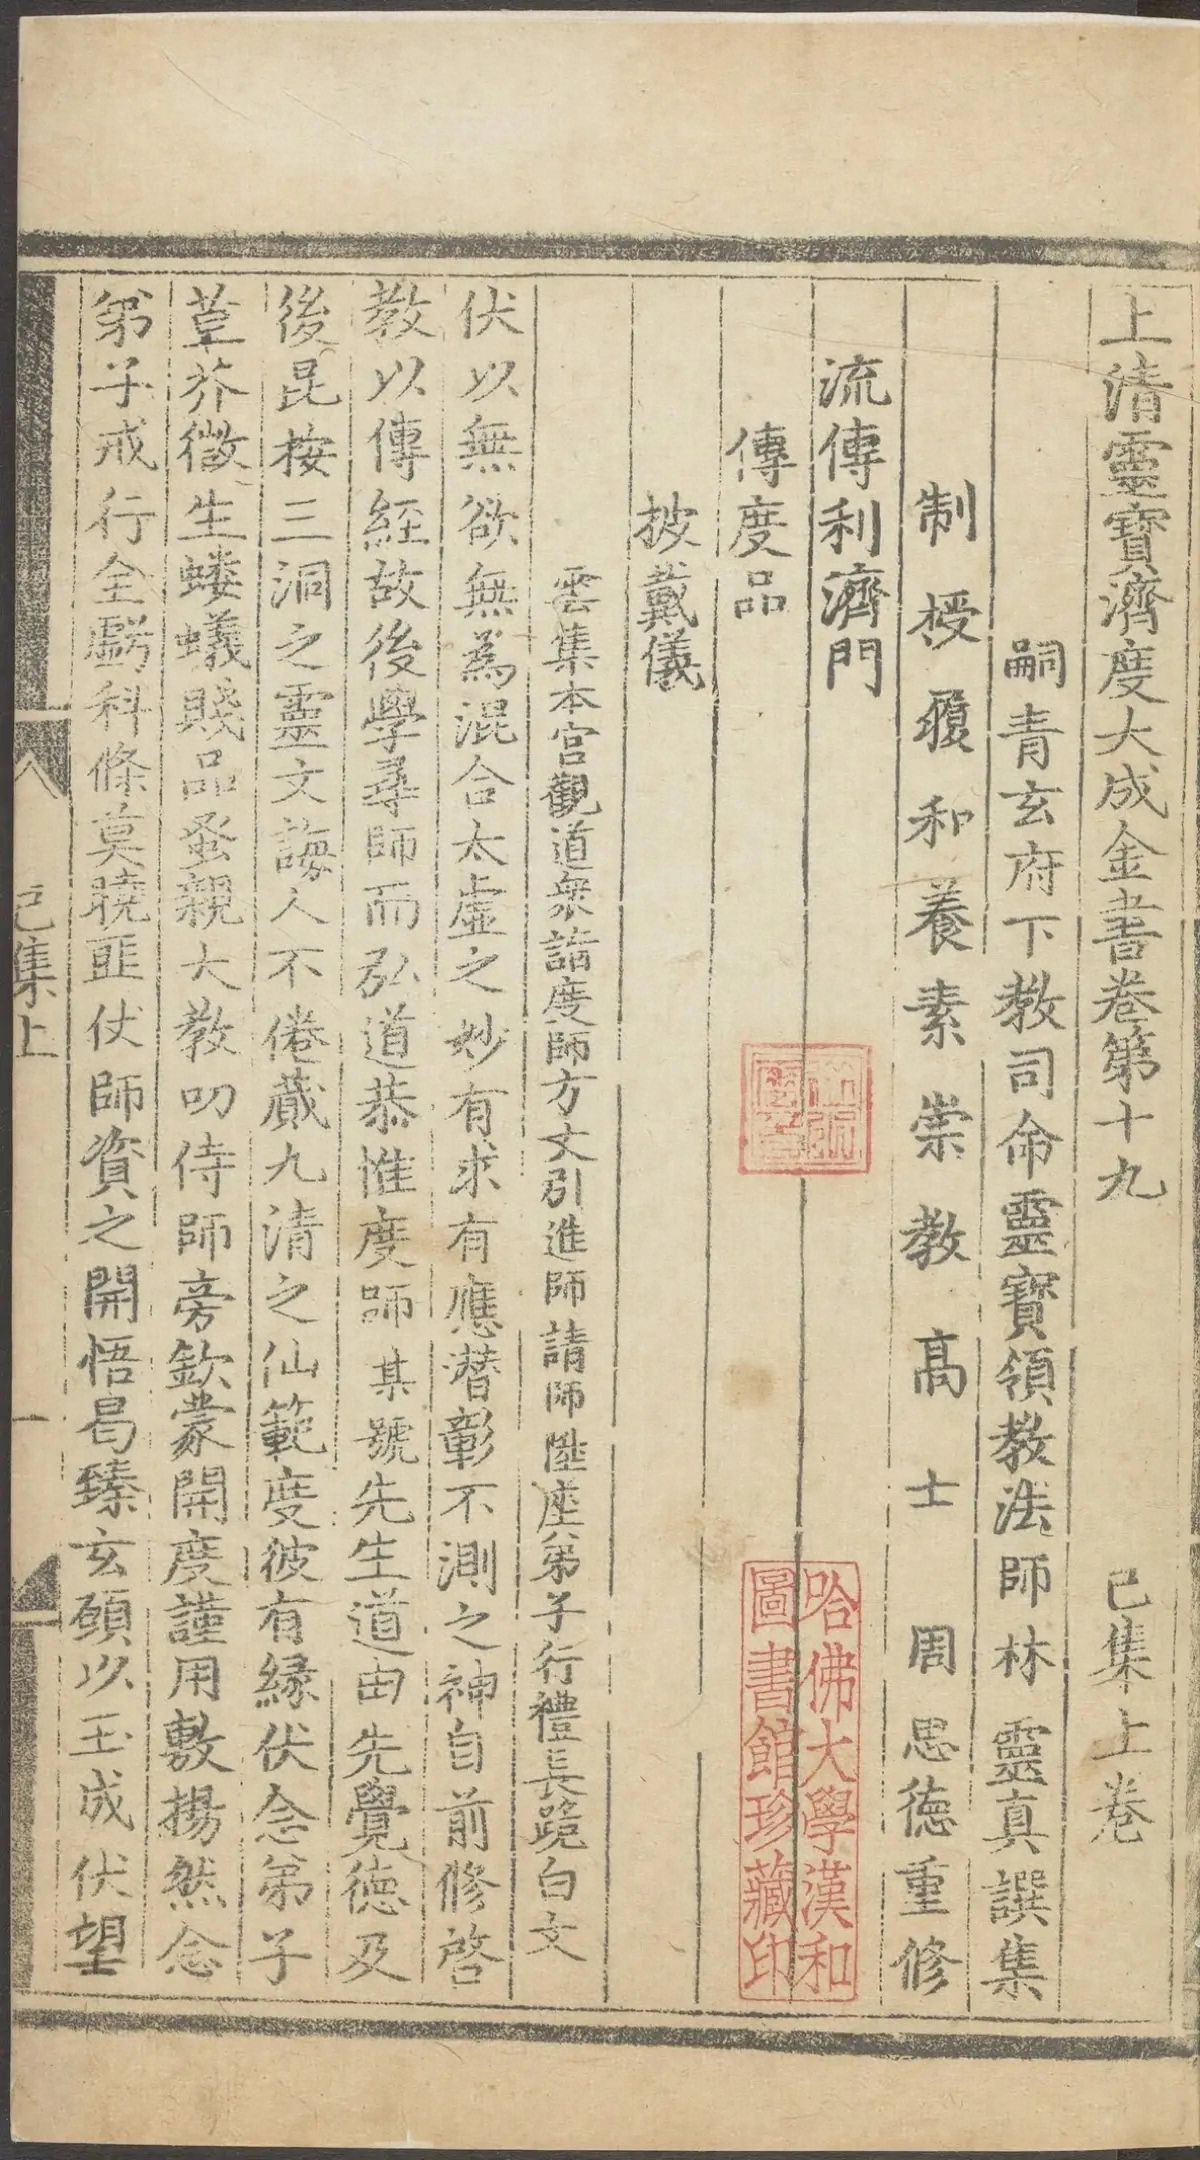 上清靈寶濟度大成金書卷第十九 己集上卷
嗣青玄府下教司命靈寶領教法師林 靈真 譔集
制授履和養素崇教高士 周思德重修
流傳利濟門
傳度品
披戴儀
雲集本宮觀道衆詣度師方丈引進師請師陞座弟子行禮長跪白文
伏以無欲無為混合太虛之妙有求有應潛彰不測之神自前修啓
教以傳經故後學尋師而弘道恭惟度師某號先生道由先覺德及
後昆按三洞之靈文誨人不倦蕆九清之仙範度彼有緣伏念弟子
草芥微生螻蟻賤品蚤親大教叨侍師旁欽蒙開度謹用敷揚然念
弟子戒行全虧科條莫曉匪仗師資之開悟曷臻玄願以玉成伏望
己集上
一
哈佛大學漢和
圖書館珍藏印